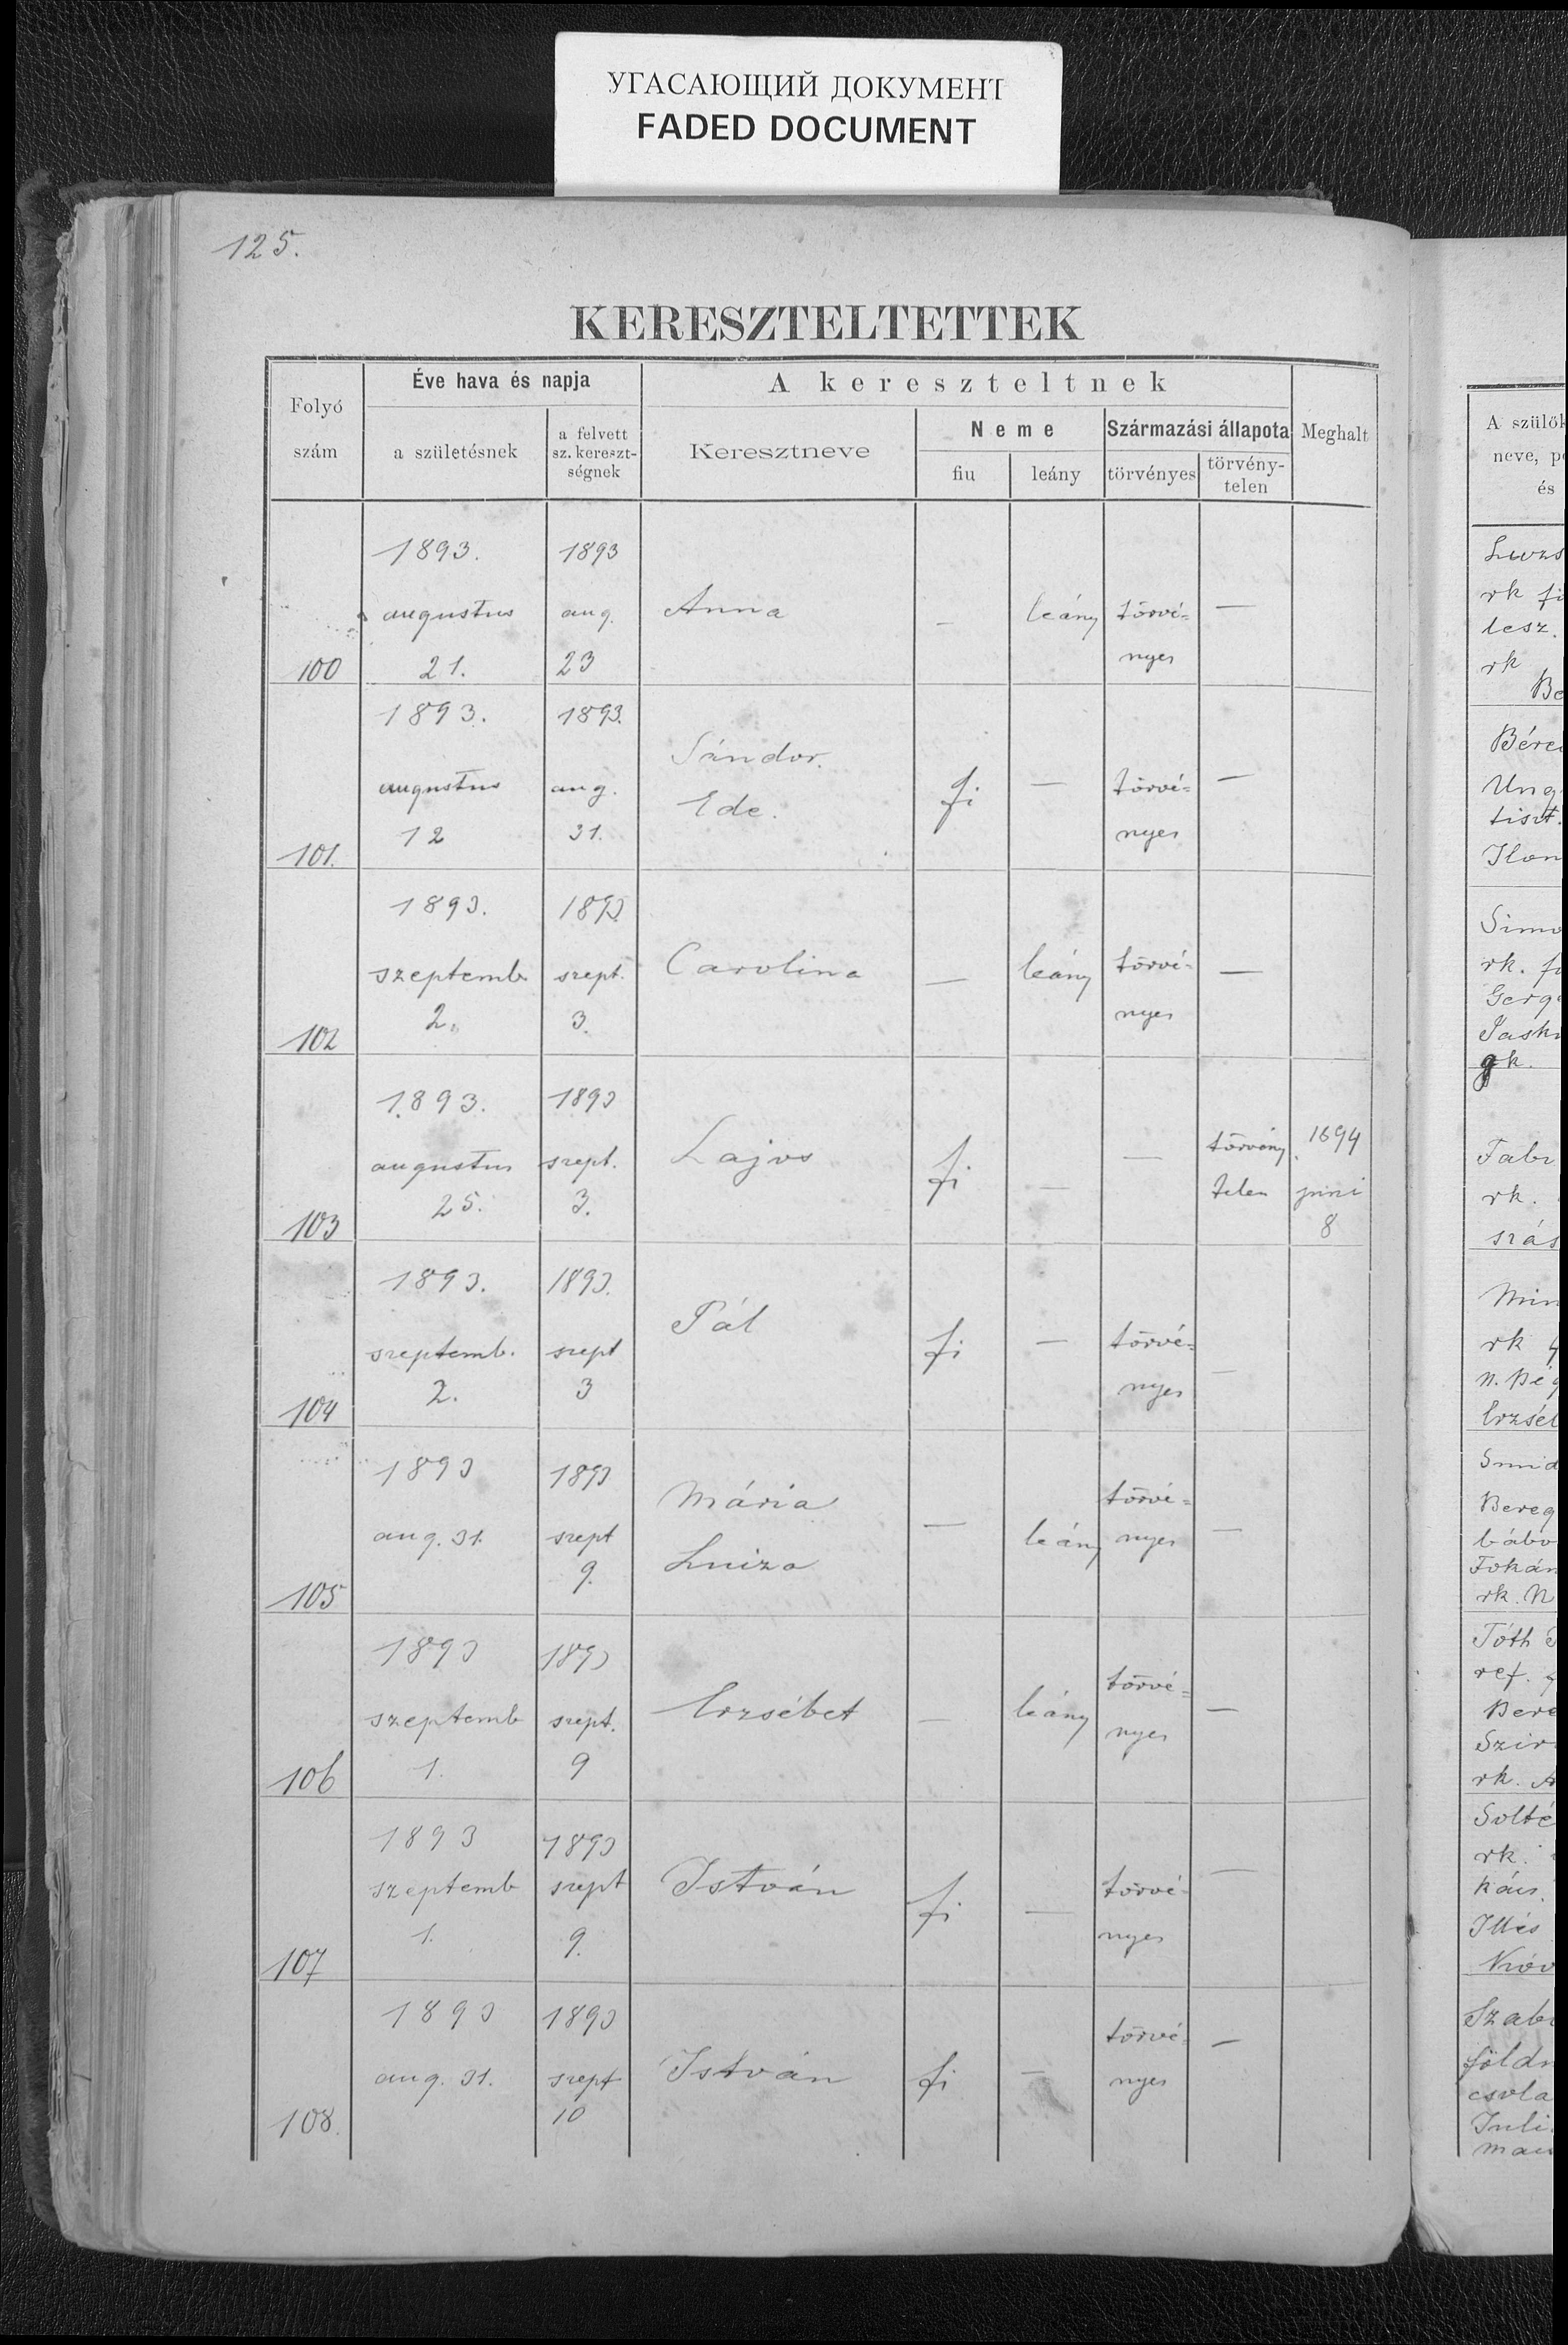 УГАСАЮЩИЙ ДОКУМЕНТ
FADED DOCUMENT
125.
KERESZTELTETTEK
Folyó
szám
Éve hava és napja
a születésnek
a felvett
sz. kereszt-
ségnek
A kereszteltnek
Keresztneve
Neme
fiu
leány
Származási állapota
törvényes
törvény-
telen
Meghalt
A szülők
neve, p
és
100
1893.
augustus
21.
1893
aug.
23
Anna
–
leány
törvé=
nyes
—
101.
1893.
augustus
12
1893.
aug.
31.
Sándor.
Ede.
fi
—
törvé=
nyes
—
102
1893.
szeptemb.
2.
1893
szept.
3.
Carolina
—
leány
törvé=
nyes
—
103
1893.
augustus
25.
1893
szept.
3.
Lajos
fi
—
—
törvény
telen
1694
juni
8
104
1893.
szeptemb.
2.
1893.
szept
3
Pál
fi
—
törvé=
nyes
—
105
1893
aug. 31.
1893
szept
9.
Mária
Luiza
—
leány
törvé=
nyes
—
106
1893
szeptemb
1.
1893
szept.
9
Erzsébet
—
leány
törvé=
nyes
—
107
1893
szeptemb
1.
1893
szept
9.
István
fi
—
törvé=
nyes
—
108.
1893
aug. 31.
1893
szept
10
István
fi
—
törvé=
nyes
—
rk fi
lesz.
rk
Be
Bére
Ung
tiszt.
Ilon
Simo
rk. f
Gerg
gk.
rk.
szás
rk
Erzséb
Bereg
bábo
Fokán
rk. N
Tóth
ref.
Bere
Szir
rk. A
Solté
rk.
Illés
Szab
földm
csola
Juli